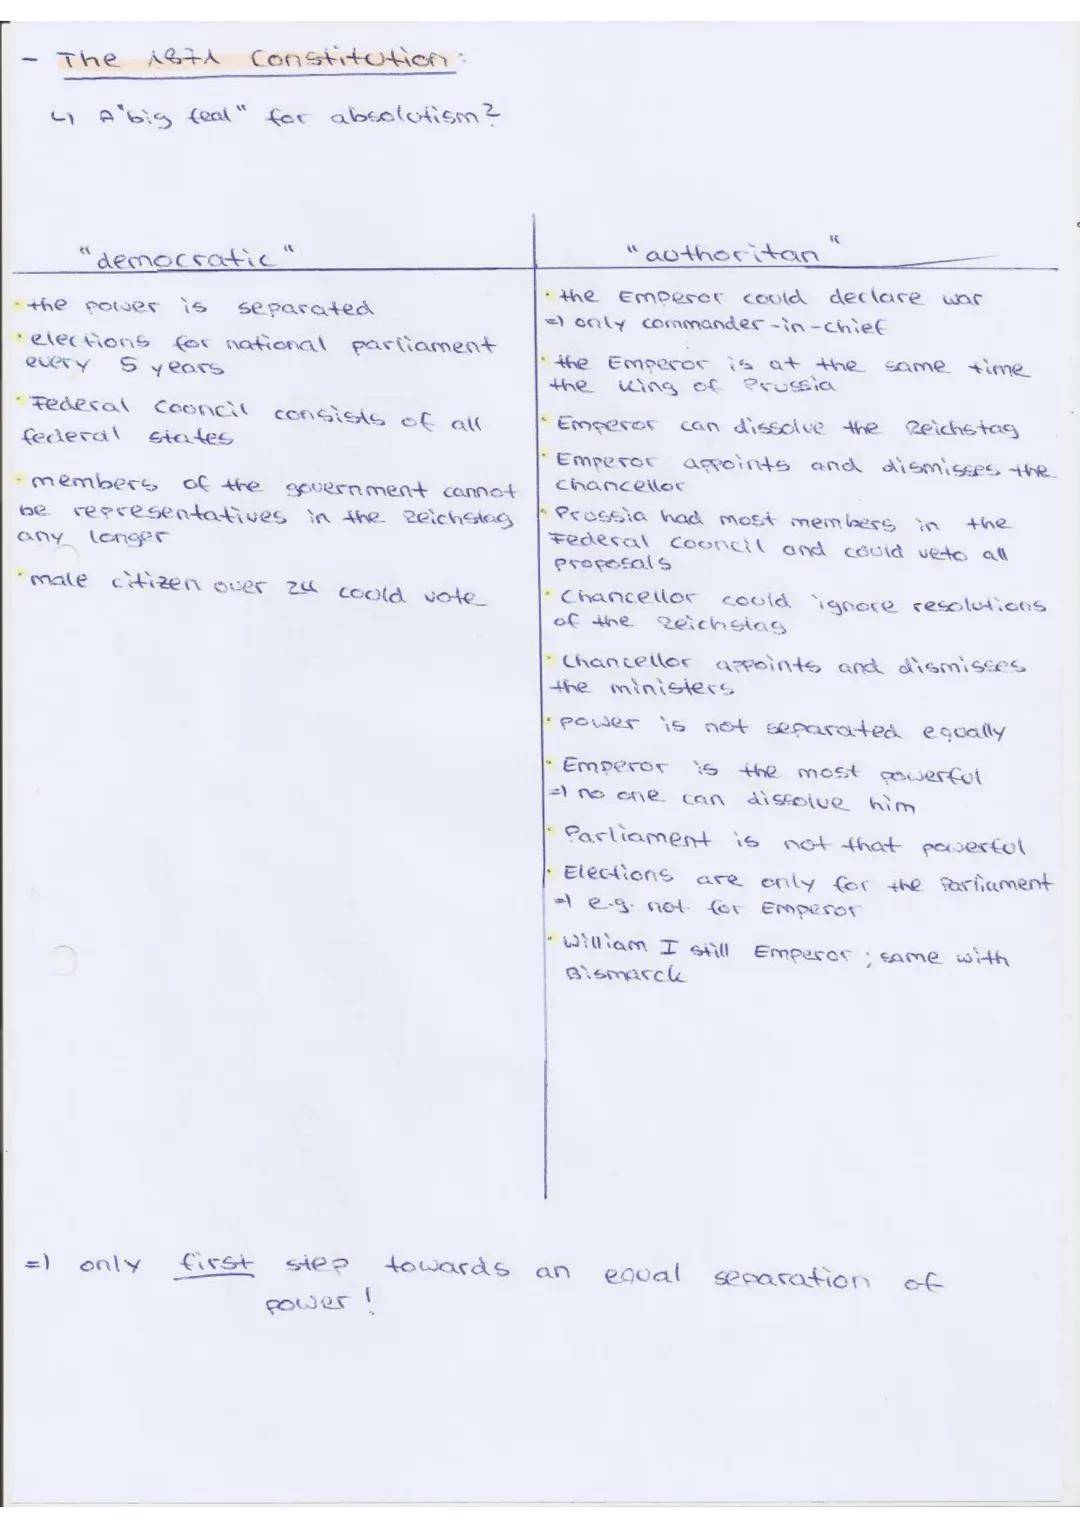 - The 1871 Constitution:
↳ A "big feal" for absolutism?
"democratic"
• the power is separated
• elections for national parliament
every 5 years
• Federal Council consists of all
federal states
• members of the government cannot
be representatives in the Reichstag
any longer
• male citizen over 24 could vote
"authoritan"
• the Emperor could declare war
=) only commander-in-chief
• the Emperor is at the same time
the King of Prussia
• Emperor can dissolve the Reichstag
• Emperor appoints and dismisses the
chancellor
• Prussia had most members in the
Federal Council and could veto all
proposals
• Chancellor could ignore resolutions
of the Reichstag
• Chancellor appoints and dismisses
the ministers
• power is not separated equally
• Emperor is the most powerful
=) no one can dissolve him
• Parliament is not that powerful
• Elections are only for the Parliament
=) e.g. not for Emperor
• William I still Emperor; same with
Bismarck
=) only first step towards an equal separation of
power!